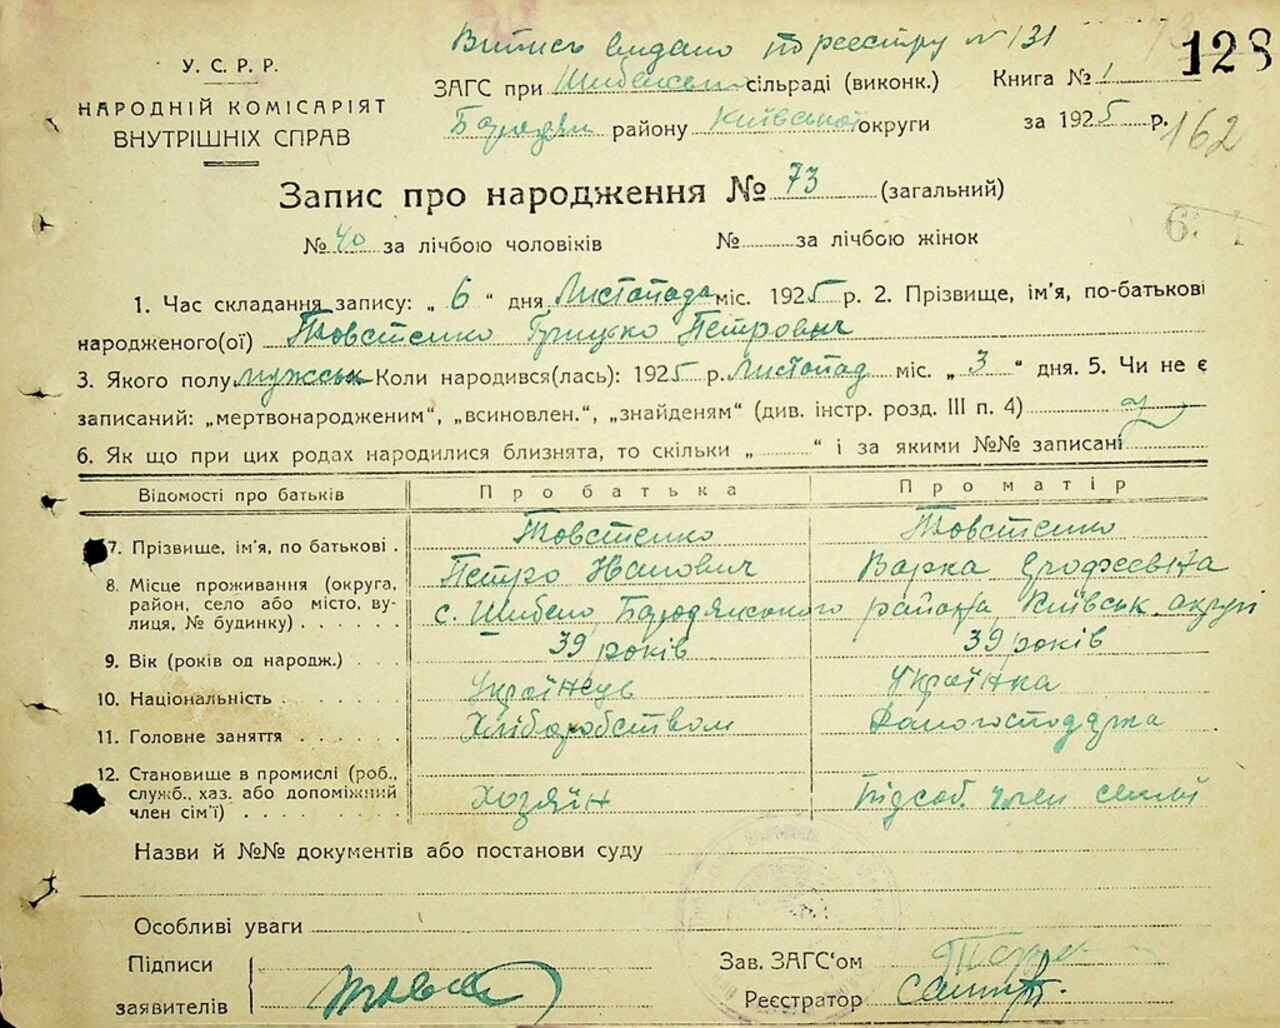 Витись видано по реестру № 131
128
У. С. Р. Р.
НАРОДНІЙ КОМІСАРІЯТ
ВНУТРІШНІХ СПРАВ
ЗАГС при сільраді (виконк.)
Книга № 1
району Київської округи
за 1925 р.
162
Запис про народження № 73 (загальний)
№ 40 за лічбою чоловіків № за лічбою жінок
1. Час складання запису: „ 6 “ дня Листопада міс. 1925 р. 2. Прізвище, ім'я, по-батькові
народженого(ої) Товстенко Грицько Петрович
3. Якого полу мужськ Коли народився(лась): 1925 р. Листопад міс. „ 3 “ дня. 5. Чи не є
записаний: „мертвонародженим“, „всиновлен.“, „знайденям“ (див. інстр. розд. III п. 4)
6. Як що при цих родах народилися близнята, то скільки „ “ і за якими №№ записані
Відомості про батьків Про батька Про матір
Товстенко Товстенко
7. Прізвище, ім'я, по батькові .
Петро Иванович Варка Єрофеевна
8. Місце проживання (округа,
район, село або місто, ву-
лиця, № будинку) . . . . . .
с. Шибено Бородянського района Київськ. округи
9. Вік (років од народж.) . . . 39 років 39 років
10. Національність . . . . . . . Українець Українка
11. Головне заняття . . . . . . Хліборобством Домогосподарка
12. Становище в промислі (роб.,
служб., хаз. або допоміжний
член сім'ї) . . . . . . . . .
Хозяїн Підсоб. член семьї
Назви й №№ документів або постанови суду
Особливі уваги
Підписи
заявителів
Зав. ЗАГС'ом
Реєстратор